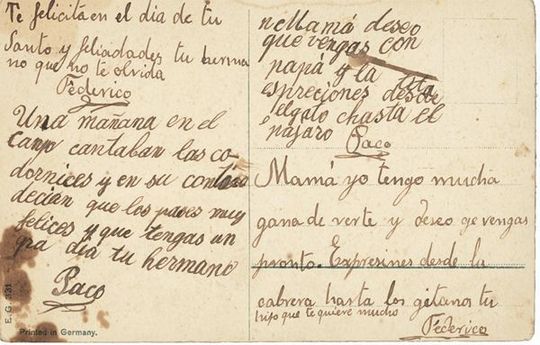 Te felicita en el dia de tu
Santo y feliadades tu herma
no que no te olvida
Federico
Una mañana en el
canpo cantaban las co-
dornices y en su
decian que los pases muy
felices y que tengas un
gra dia tu hermano
Paco
E. G. 331
Printed in Germany.
Mamá deseo
que vengas con
papá y la
espreciones desde
el gato chasta el
pájaro Paco
Mamá yo tengo mucha
gana de verte y deseo qe vengas
pronto. Expresines desde la
cabrera hasta los gitanos tu
hijo que te quiere mucho
Federico